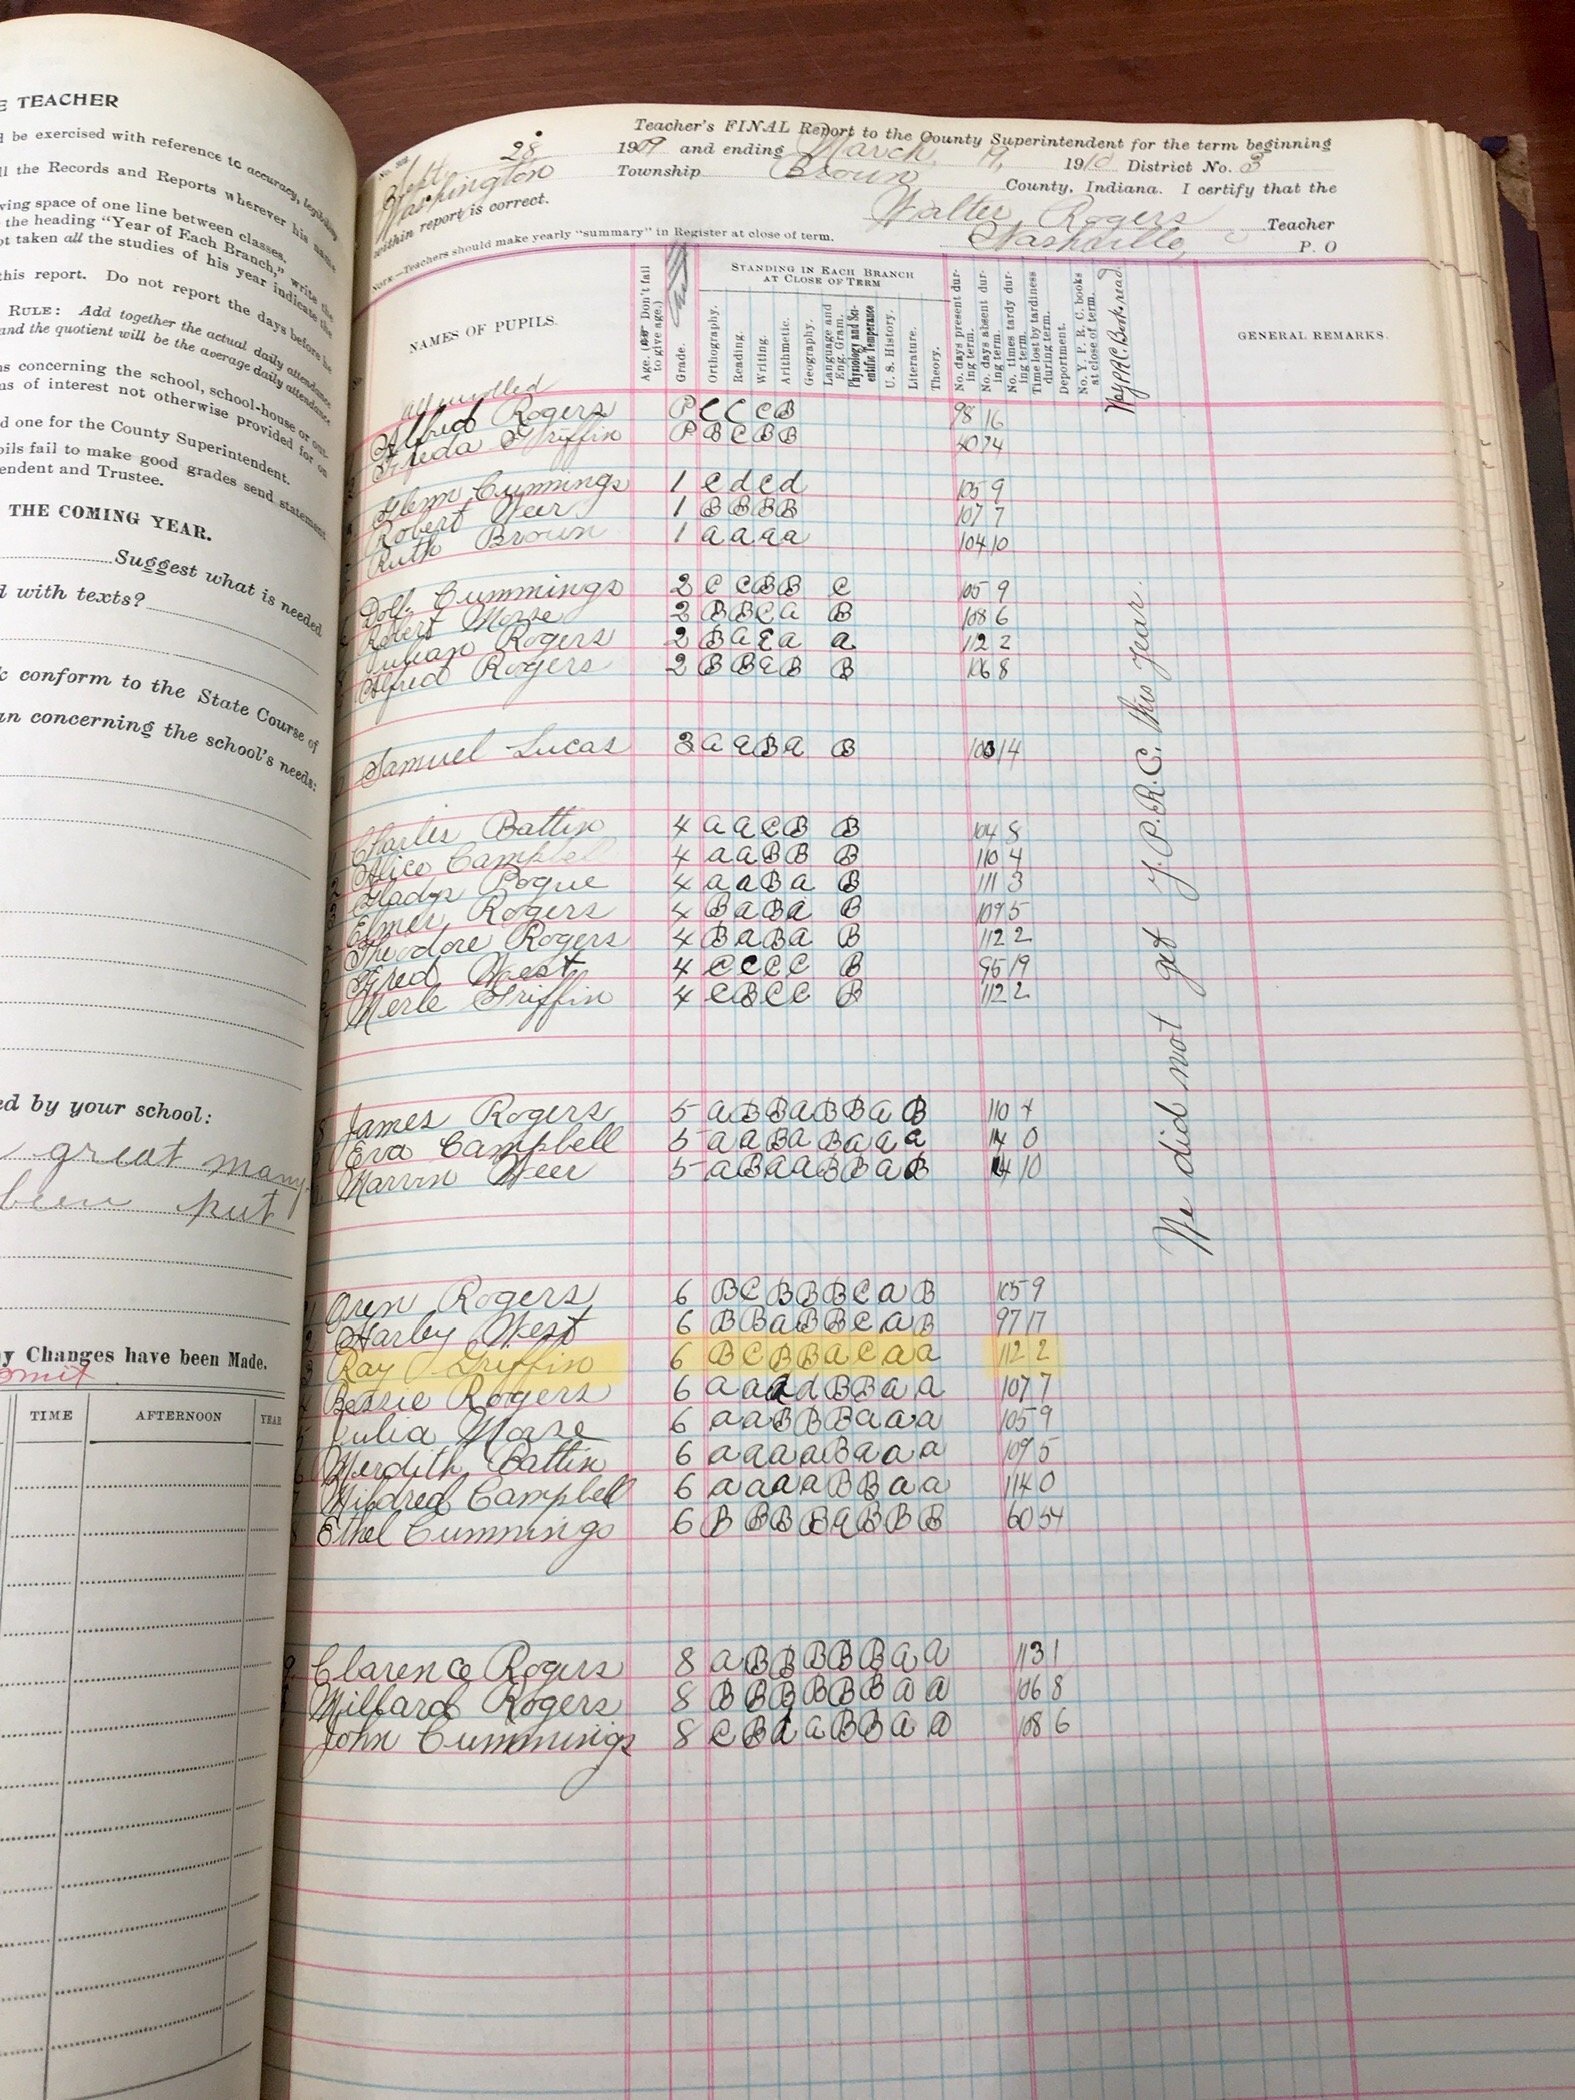 E TEACHER
d be exercised with reference to accuracy, legibility
ll the Records and Reports wherever his name
ving space of one line between classes.
the heading "Year of Each Branch," write the
ot taken all the studies of his year indicate the
this report. Do not report the days before he
RULE: Add together the actual daily attendance
and the quotient will be the average daily attendance
ns concerning the school, school-house or out-
ms of interest not otherwise provided for on
d one for the County Superintendent.
pils fail to make good grades send statement
endent and Trustee.
THE COMING YEAR.
Suggest what is needed
d with texts?
k conform to the State Course of
an concerning the school's needs:
ed by your school:
great many
been put
y Changes have been Made.
omit
TIME AFTERNOON YEAR
Teacher's FINAL Report to the County Superintendent for the term beginning
Sept. 28 1909 and ending March 9, 1910 District No. 3
Washington Township Brown County, Indiana. I certify that the
within report is correct. Walter Rogers Teacher
Nashville, P. O
NOTE.—Teachers should make yearly "summary" in Register at close of term.
NAMES OF PUPILS.
Age. Don't fail to give age.)
Grade.
STANDING IN EACH BRANCH
AT CLOSE OF TERM
Orthography.
Reading.
Writing.
Arithmetic.
Geography.
Language and Eng. Gram.
Physiology and Scientific Temperance
U. S. History.
Literature.
Theory.
No. days present during term.
No. days absent during term.
No. times tardy during term.
Time lost by tardiness during term.
Deportment.
No. Y. P. R. C. books at close of term.
No Y.P.R.C. Books read
GENERAL REMARKS.
all enrolled
Alfred Rogers P C C C B 98 16
Freda Griffin P B C B B 40 74
Glenn Cummings 1 C d C d 105 9
Robert Weer 1 B B B B 107 7
Ruth Brown 1 a a a a 104 10
Doll Cummings 2 C C B B C 105 9
Robert Morse 2 B B C a B 108 6
Julian Rogers 2 B a a a 112 2
Alfred Rogers 2 B B B B 106 8
Samuel Lucas 3 a a B a B 100 14
Charlie Battin 4 a a C B B 104 8
Alice Campbell 4 a a B B B 110 4
Gladys Pogue 4 a a B a B 111 3
Elmer Rogers 4 B a B a B 109 5
Theodore Rogers 4 B a B a B 112 2
Fred West 4 C C C C B 95 19
Merle Griffin 4 C B C C B 112 2
James Rogers 5 a B B a B B a B 110 4
Eva Campbell 5 a a B a B a a a 114 0
Marvin Weer 5 a B a a B B a B 10
Oren Rogers 6 B C B B B C a B 105 9
Harley West 6 B B a B B C a B 97 17
Ray Griffin 6 B C B B a C a a 112 2
Bessie Rogers 6 a a a d B B a a 107 7
Julia Morse 6 a a B B B a a a 105 9
Merdith Battin 6 a a a a B a a a 109 5
Mildred Campbell 6 a a a a B B a a 114 0
Ethel Cummings 6 B B B B a B B B 60 54
Clarence Rogers 8 a B B B B B a a 113 1
Millard Rogers 8 B B B B B B a a 106 8
John Cummings 8 C B a B B a a 108 6
We did not get Y. P. R. C. this year.